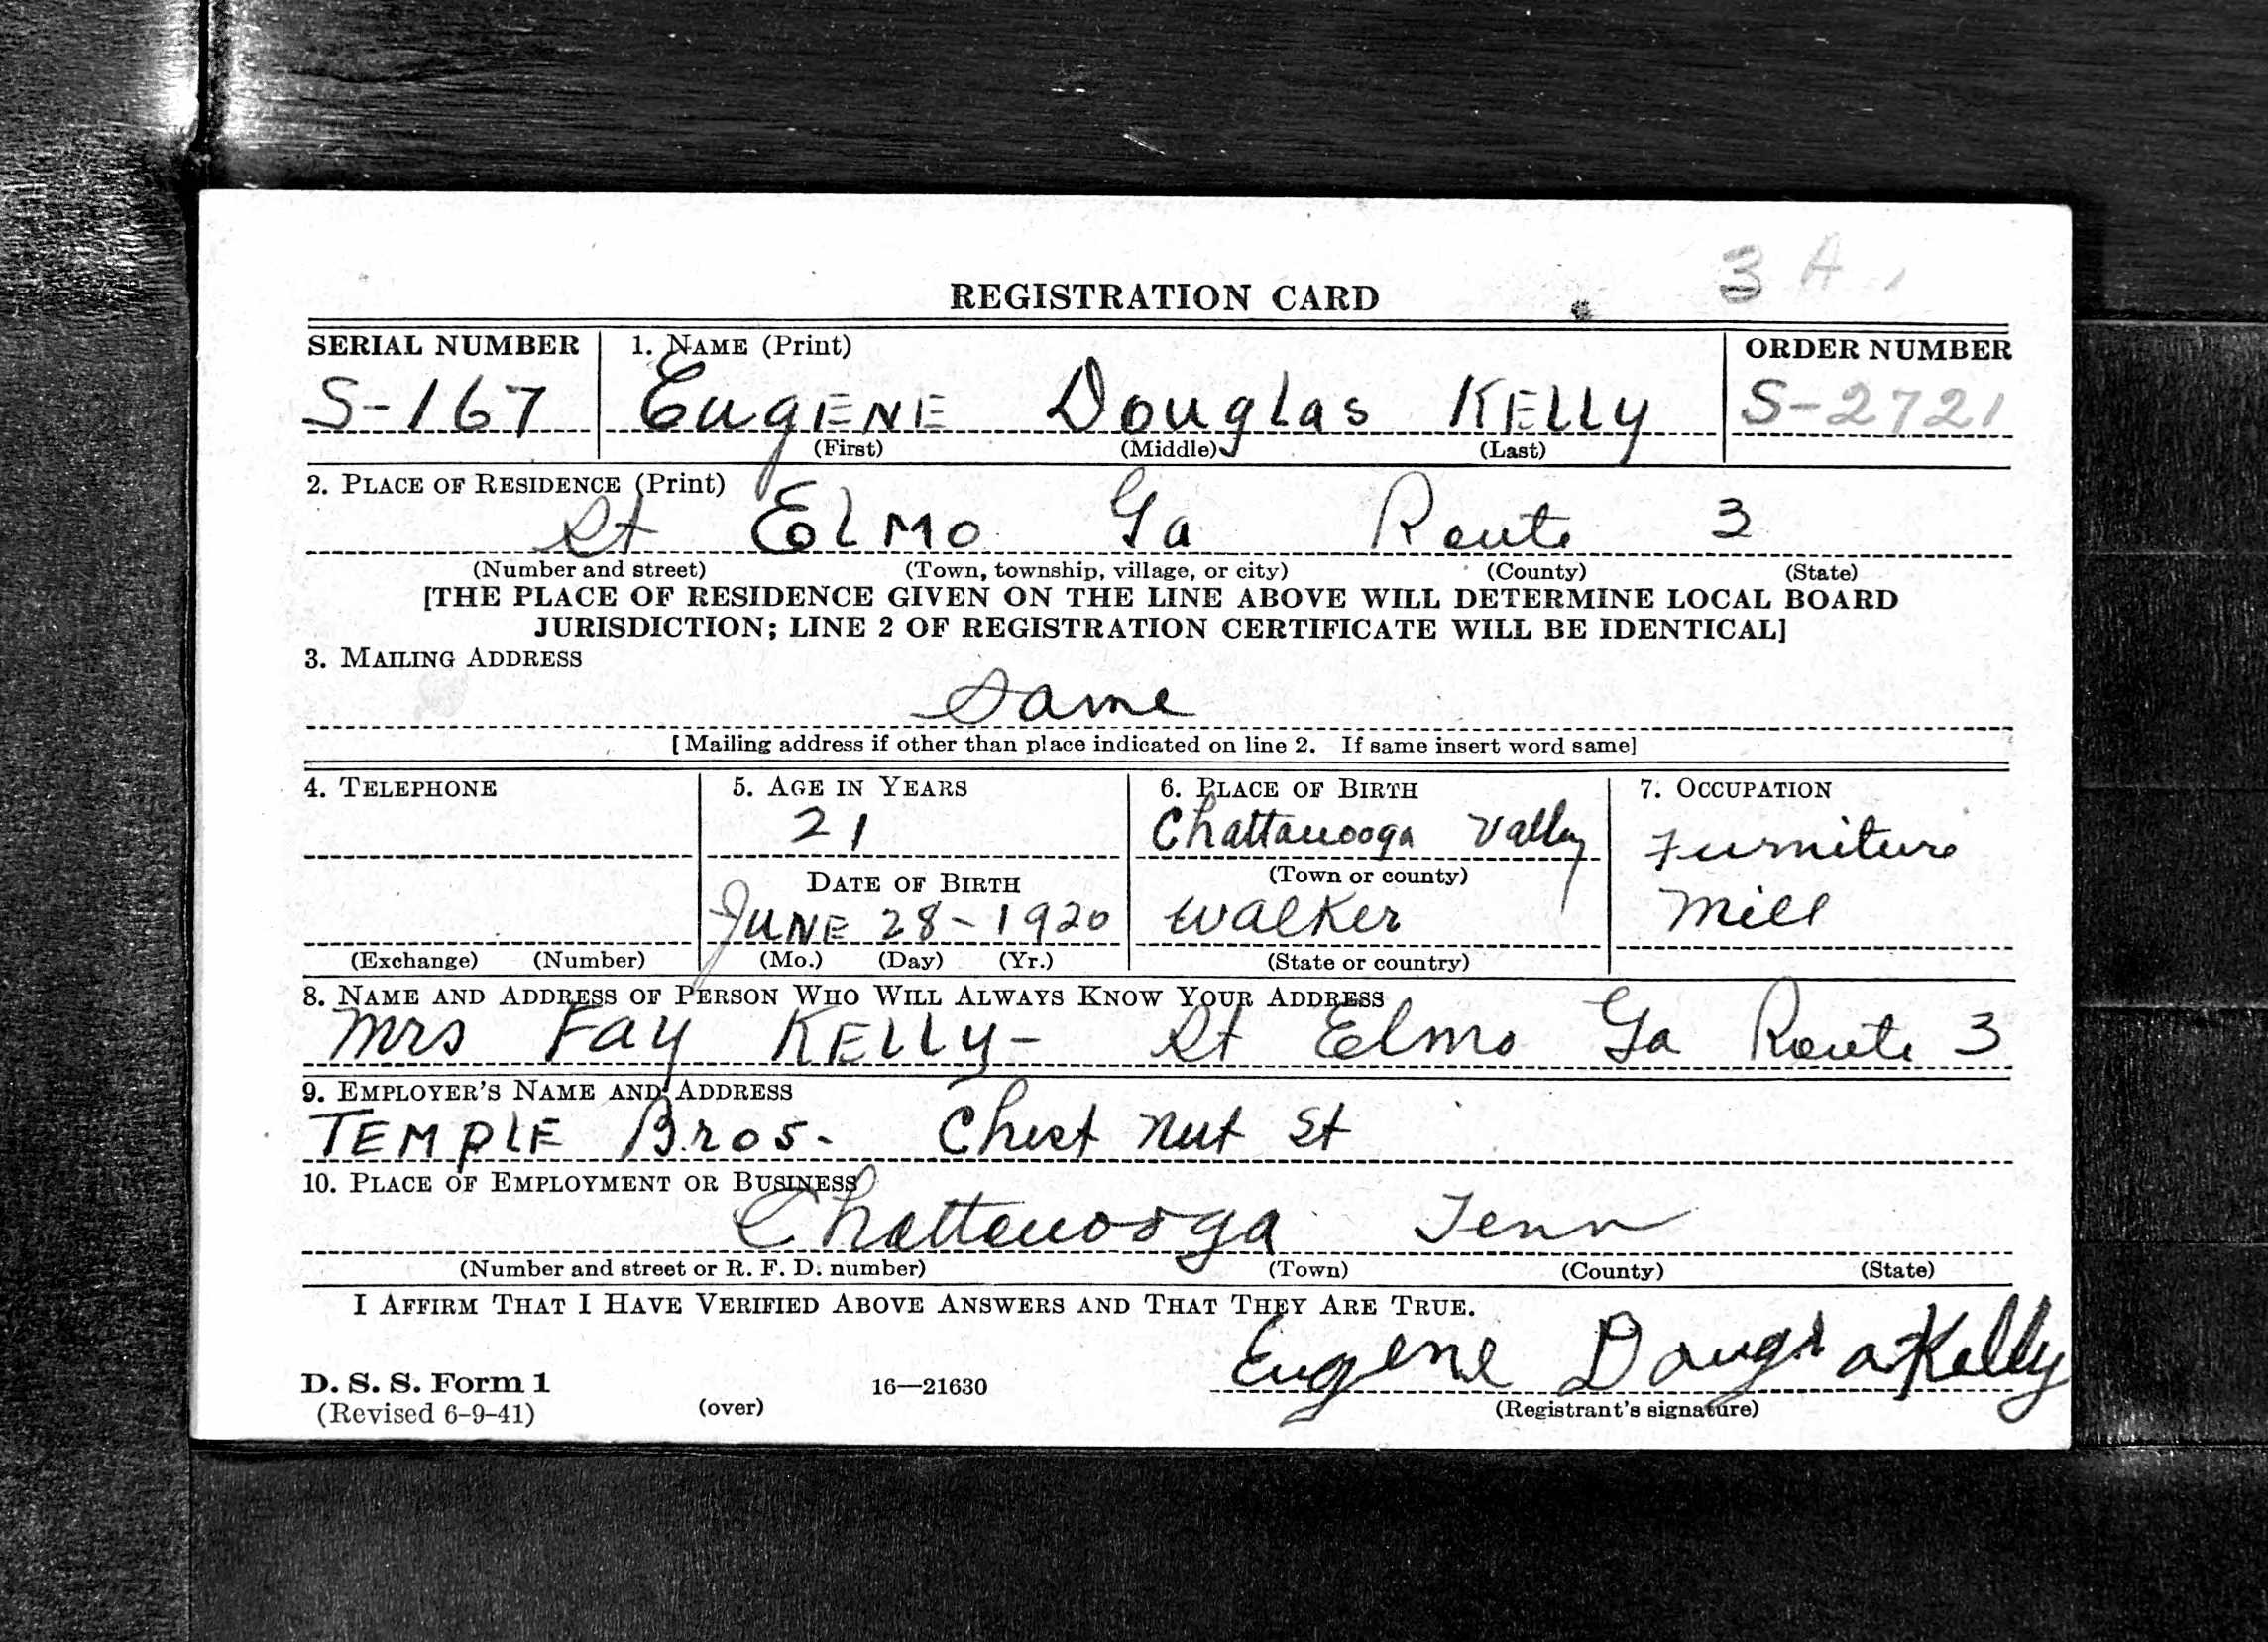 3 A
REGISTRATION CARD
SERIAL NUMBER 1. NAME (Print) ORDER NUMBER
S-167 EugENE DouglAs KElly S-2721
(First) (Middle) (Last)
2. PLACE OF RESIDENCE (Print)
St ElMo Ga Route 3
(Number and street) (Town, township, village, or city) (County) (State)
[THE PLACE OF RESIDENCE GIVEN ON THE LINE ABOVE WILL DETERMINE LOCAL BOARD
JURISDICTION; LINE 2 OF REGISTRATION CERTIFICATE WILL BE IDENTICAL]
3. MAILING ADDRESS
Same
[Mailing address if other than place indicated on line 2. If same insert word same]
4. TELEPHONE 5. AGE IN YEARS 6. PLACE OF BIRTH 7. OCCUPATION
21 Chattanooga Valley Furniture
(Town or county)
DATE OF BIRTH
JUNE 28-1920 Walker Mill
(Exchange) (Number) (Mo.) (Day) (Yr.) (State or country)
8. NAME AND ADDRESS OF PERSON WHO WILL ALWAYS KNOW YOUR ADDRESS
Mrs Fay KElly- St Elmo Ga Route 3
9. EMPLOYER'S NAME AND ADDRESS
TEMplE Bros- Chest nut St
10. PLACE OF EMPLOYMENT OR BUSINESS
Chattanooga Tenn
(Number and street or R. F. D. number) (Town) (County) (State)
I AFFIRM THAT I HAVE VERIFIED ABOVE ANSWERS AND THAT THEY ARE TRUE.
Eugene Douglas Kelly
D. S. S. Form 1
(Revised 6-9-41) (over) 16—21630 (Registrant's signature)